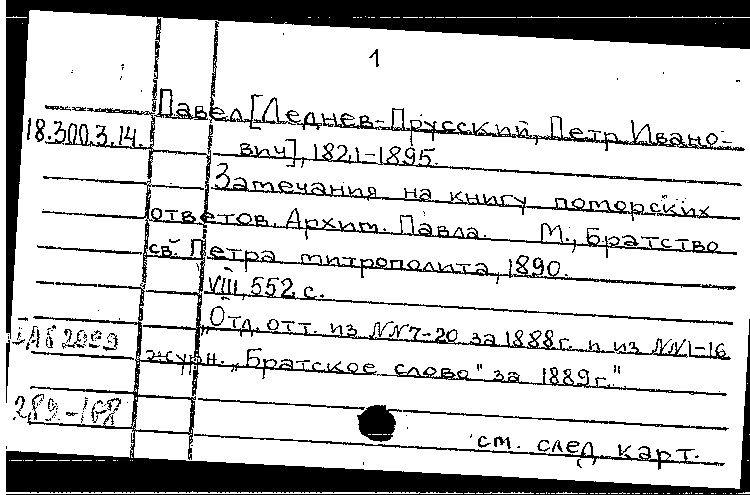 1
Павел [Леднев-Прусский, Петр Ивано-
18.300.3.14.
вич], 1821-1895.
Замечания на книгу поморских
ответов. Архим. Павла. М., Братство
св. Петра митрополита, 1890.
VIII, 552 с.
„Отд. отт. из NN7-20 за 1888г. и из NN1-16
журн. „Братское слово" за 1889г."
289-168
см. след. карт.